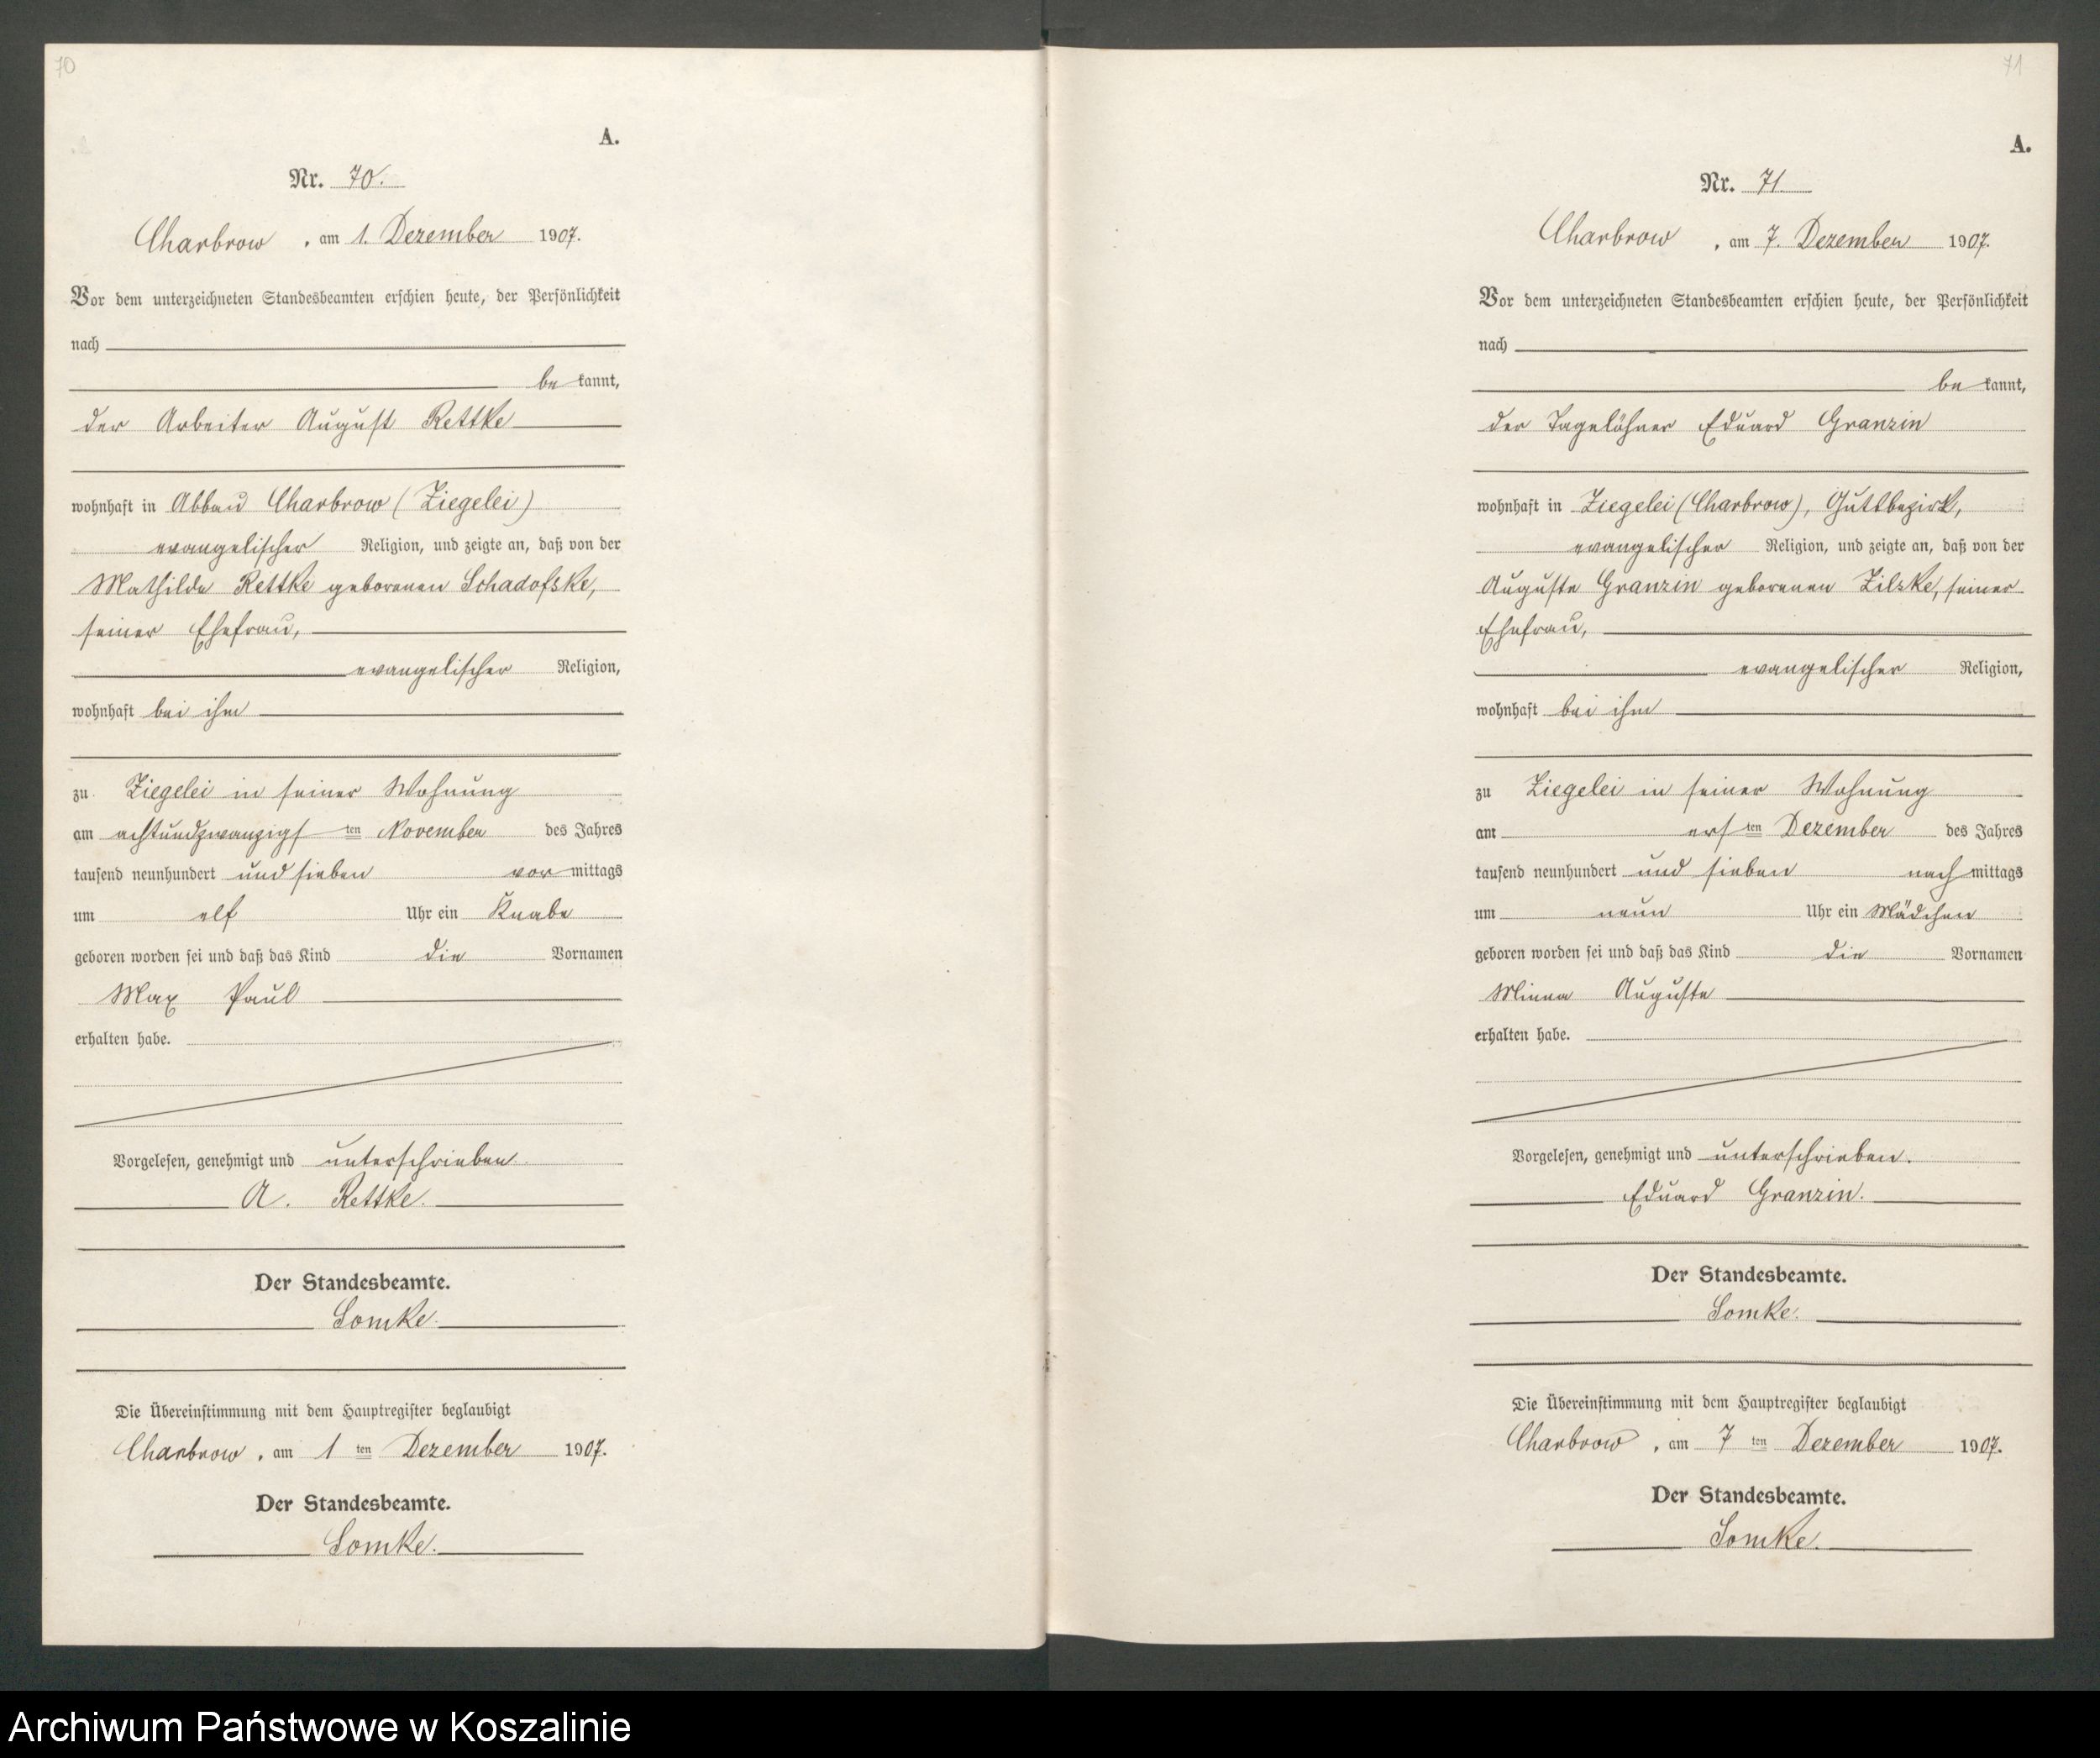 70
A.
Nr. 70.
Charbrow, am 1. Dezember 1907.
Vor dem unterzeichneten Standesbeamten erschien heute, der Persönlichkeit
nach
be kannt,
der Arbeiter August Rettke
wohnhaft in Abbau Charbrow (Ziegelei)
evangelischer Religion, und zeigte an, daß von der
Mathilde Rettke geborenen Schadofske,
seiner Ehefrau,
evangelischer Religion,
wohnhaft bei ihm
zu Ziegelei in seiner Wohnung
am achtundzwanzigsten November des Jahres
tausend neunhundert und sieben vor mittags
um elf Uhr ein Knabe
geboren worden sei und daß das Kind die Vornamen
Max Paul
erhalten habe.
Vorgelesen, genehmigt und unterschrieben.
A. Rettke.
Der Standesbeamte.
Lomke.
Die Übereinstimmung mit dem Hauptregister beglaubigt
Charbrow, am 1 ten Dezember 1907.
Der Standesbeamte.
Lomke.
71
A.
Nr. 71
Charbrow, am 7. Dezember 1907.
Vor dem unterzeichneten Standesbeamten erschien heute, der Persönlichkeit
nach
be kannt,
der Tagelöhner Eduard Granzin
wohnhaft in Ziegelei (Charbrow), Gutsbezirk,
evangelischer Religion, und zeigte an, daß von der
Auguste Granzin geborenen Zilske, seiner
Ehefrau,
evangelischer Religion,
wohnhaft bei ihm
zu Ziegelei in seiner Wohnung
am ersten Dezember des Jahres
tausend neunhundert und sieben nach mittags
um neun Uhr ein Mädchen
geboren worden sei und daß das Kind die Vornamen
Minna Auguste
erhalten habe.
Vorgelesen, genehmigt und unterschrieben.
Eduard Granzin.
Der Standesbeamte.
Lomke.
Die Übereinstimmung mit dem Hauptregister beglaubigt
Charbrow, am 7 ten Dezember 1907.
Der Standesbeamte.
Lomke.
Archiwum Państwowe w Koszalinie